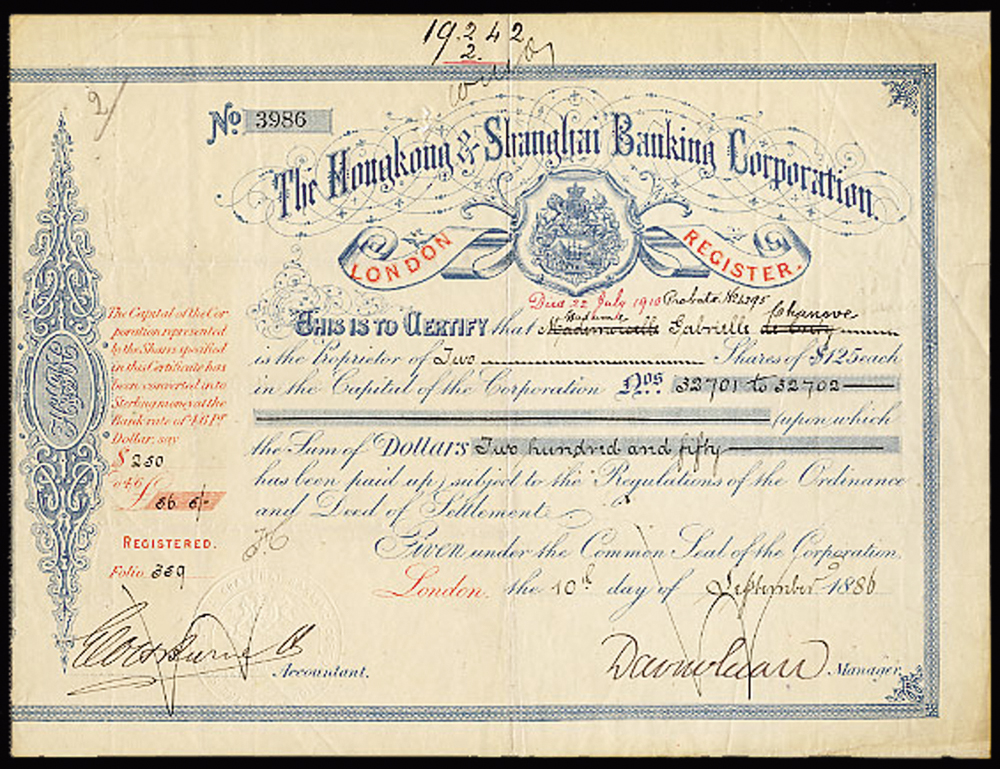 19.242
2.
2
No 3986
The Hongkong & Shanghai Banking Corporation.
LONDON REGISTER.
Died 22 July 1910 Probate No
Madame Chanove
THIS IS TO CERTIFY that Mademoiselle Gabrielle
is the Proprietor of Two Shares of $125 each
in the Capital of the Corporation Nos. 32701 to 32702
(upon which
the Sum of Dollars Two hundred and fifty
has been paid up) subject to the Regulations of the Ordinance
and Deed of Settlement.
Given under the Common Seal of the Corporation.
London. the 10th day of September 1886
Accountant.
Manager.
The Capital of the Cor
poration represented
by the Shares specified
in this Certificate has
been converted into
Sterling money at the
Bank rate of 4/6 Pr
Dollar, say
$ 250
@ 4/6
£ 56. 5/-
REGISTERED.
Folio 359